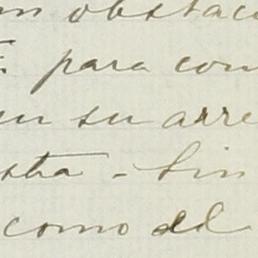 un obstácu
para con
en su arre
stra - Sin
como el